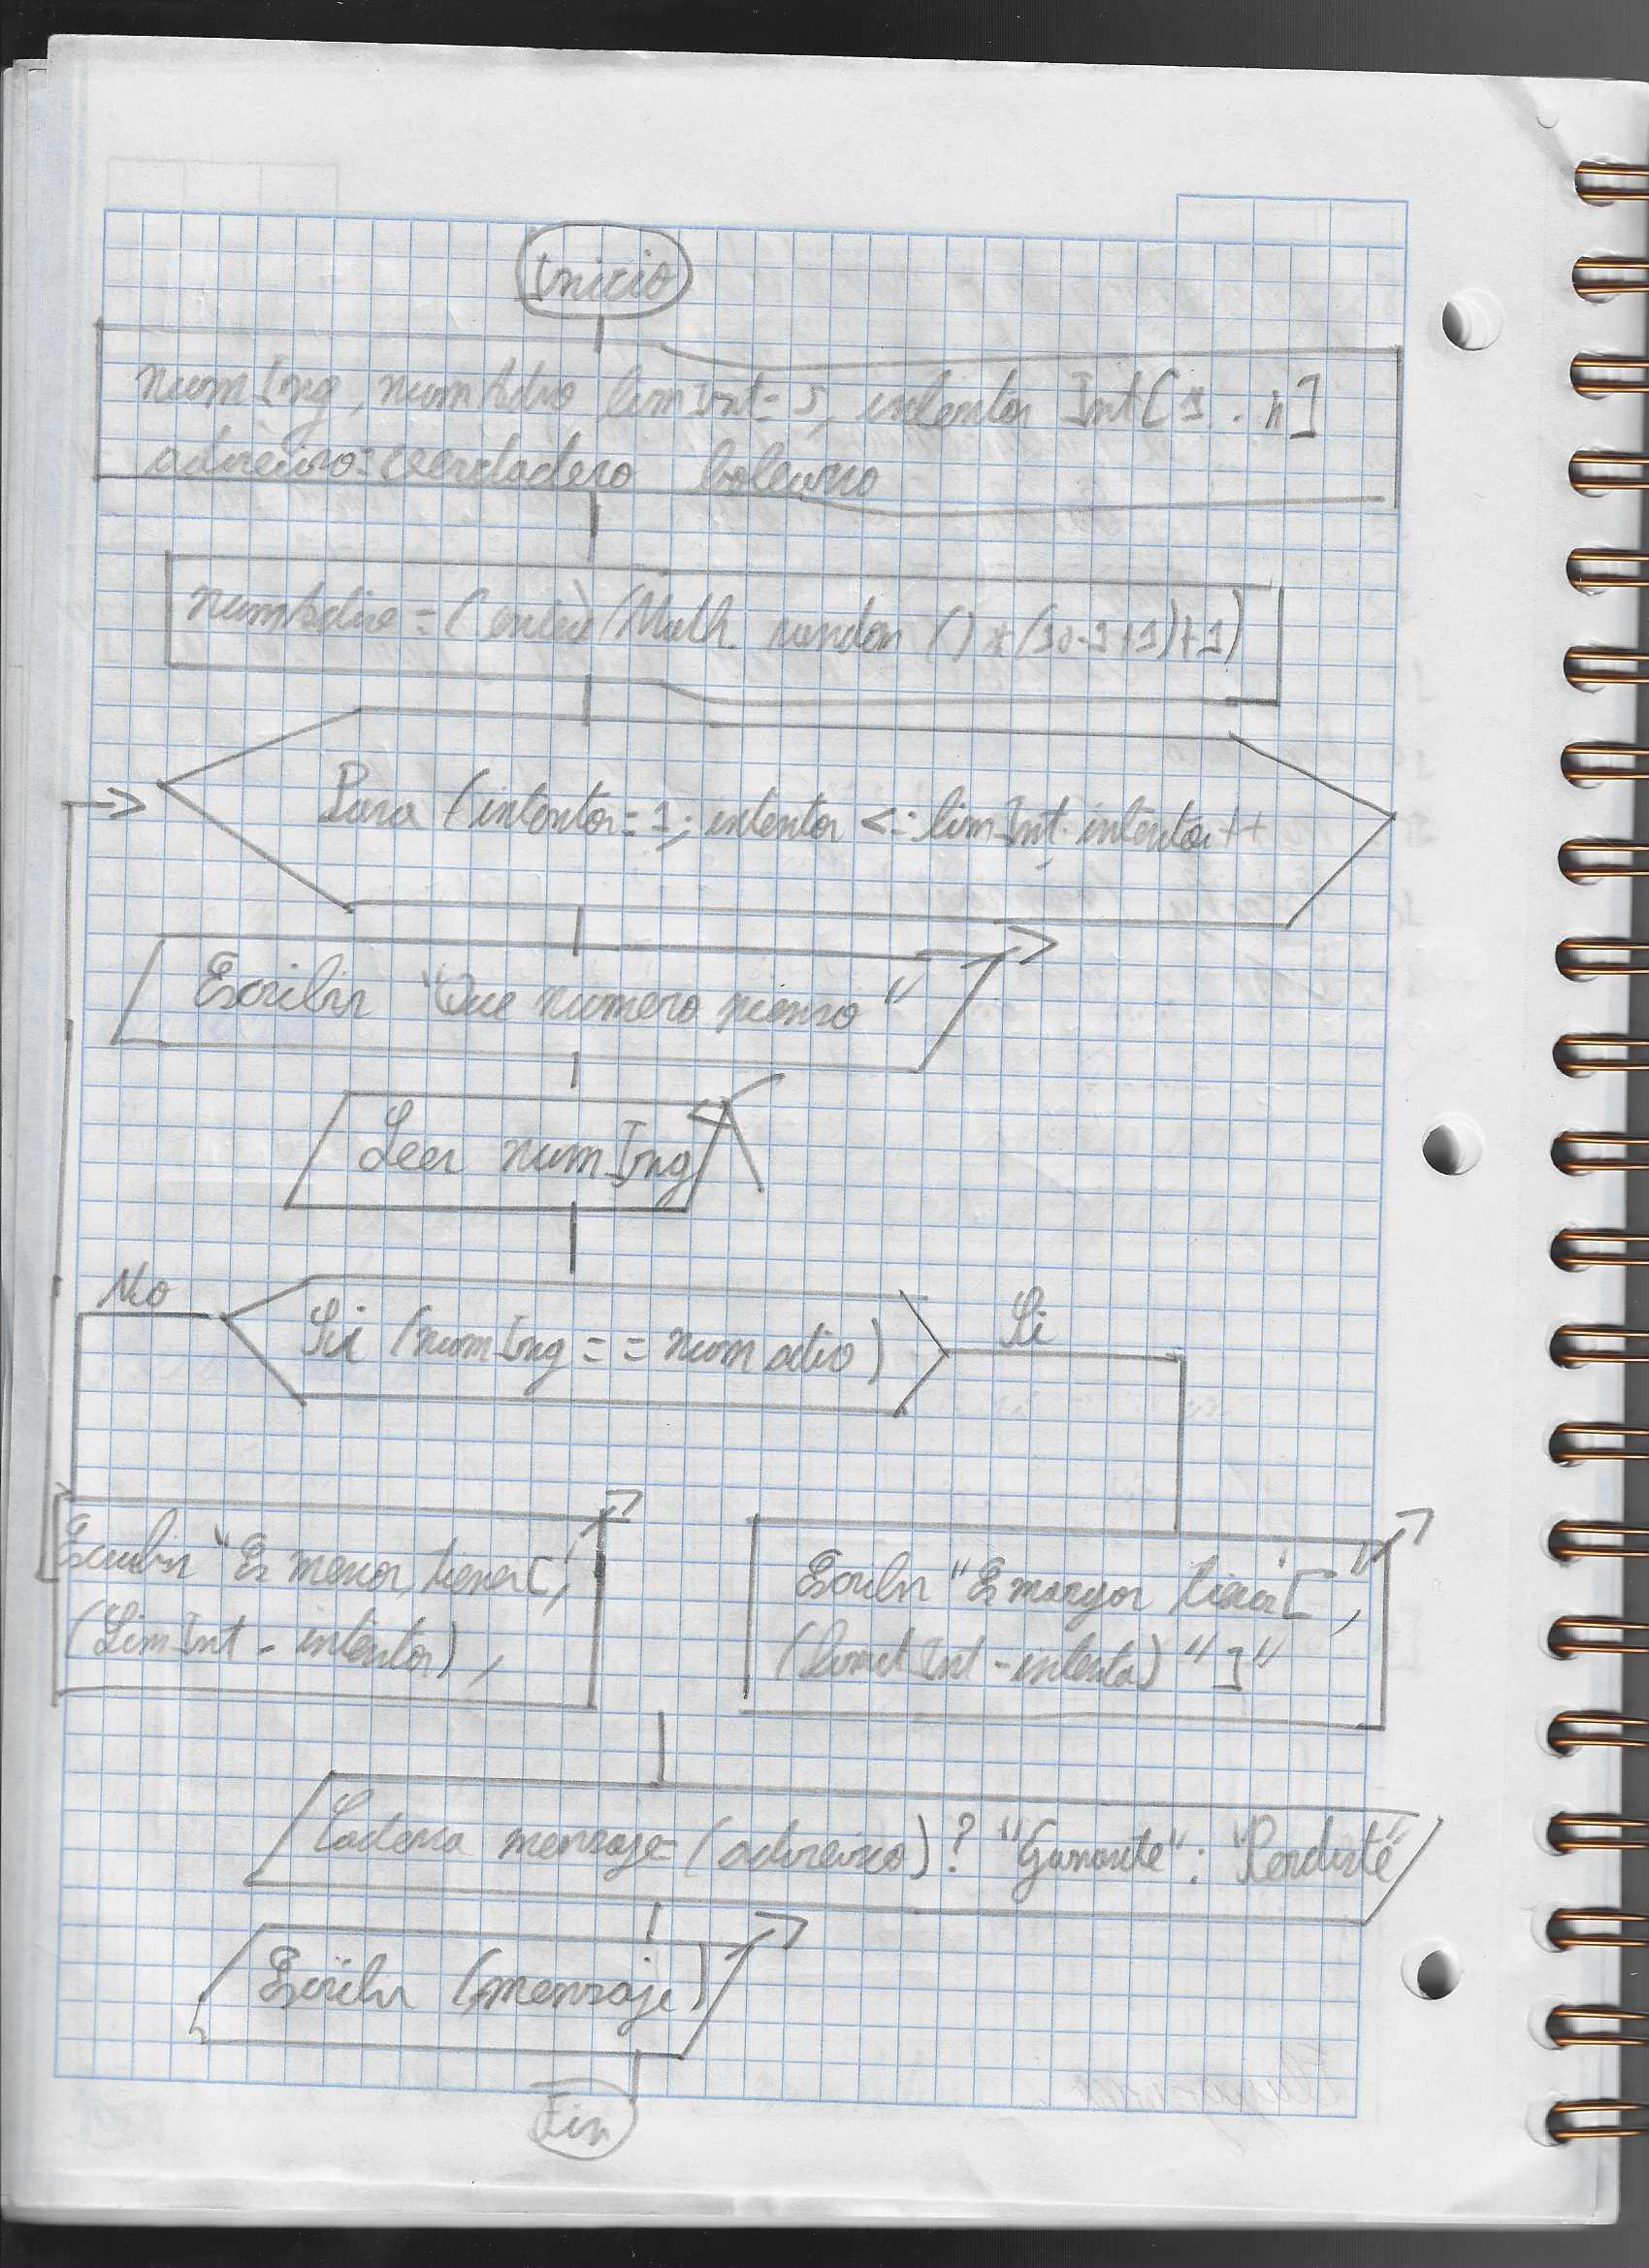 Inicio
numIng, numAdiv, limInt=5, intentos Int[1..n]
adivino=verdadero boleano
numAdiv=(entero(Math random ()*(10-1+1)+1)
Para (intentos=1; intentos <= limInt; intentos++
Escribir "Que numero pienso"
Leer numIng
No
Si
Si (numIng == num adiv)
Escribir "Es menor, tienes[",
(LimInt - intentos),
Escribir "Es mayor tienes[",
(limitInt - intento) "]"
Cadena mensaje=(adivino)? "Ganaste": "Perdiste"
Escribir (mensaje)
Fin